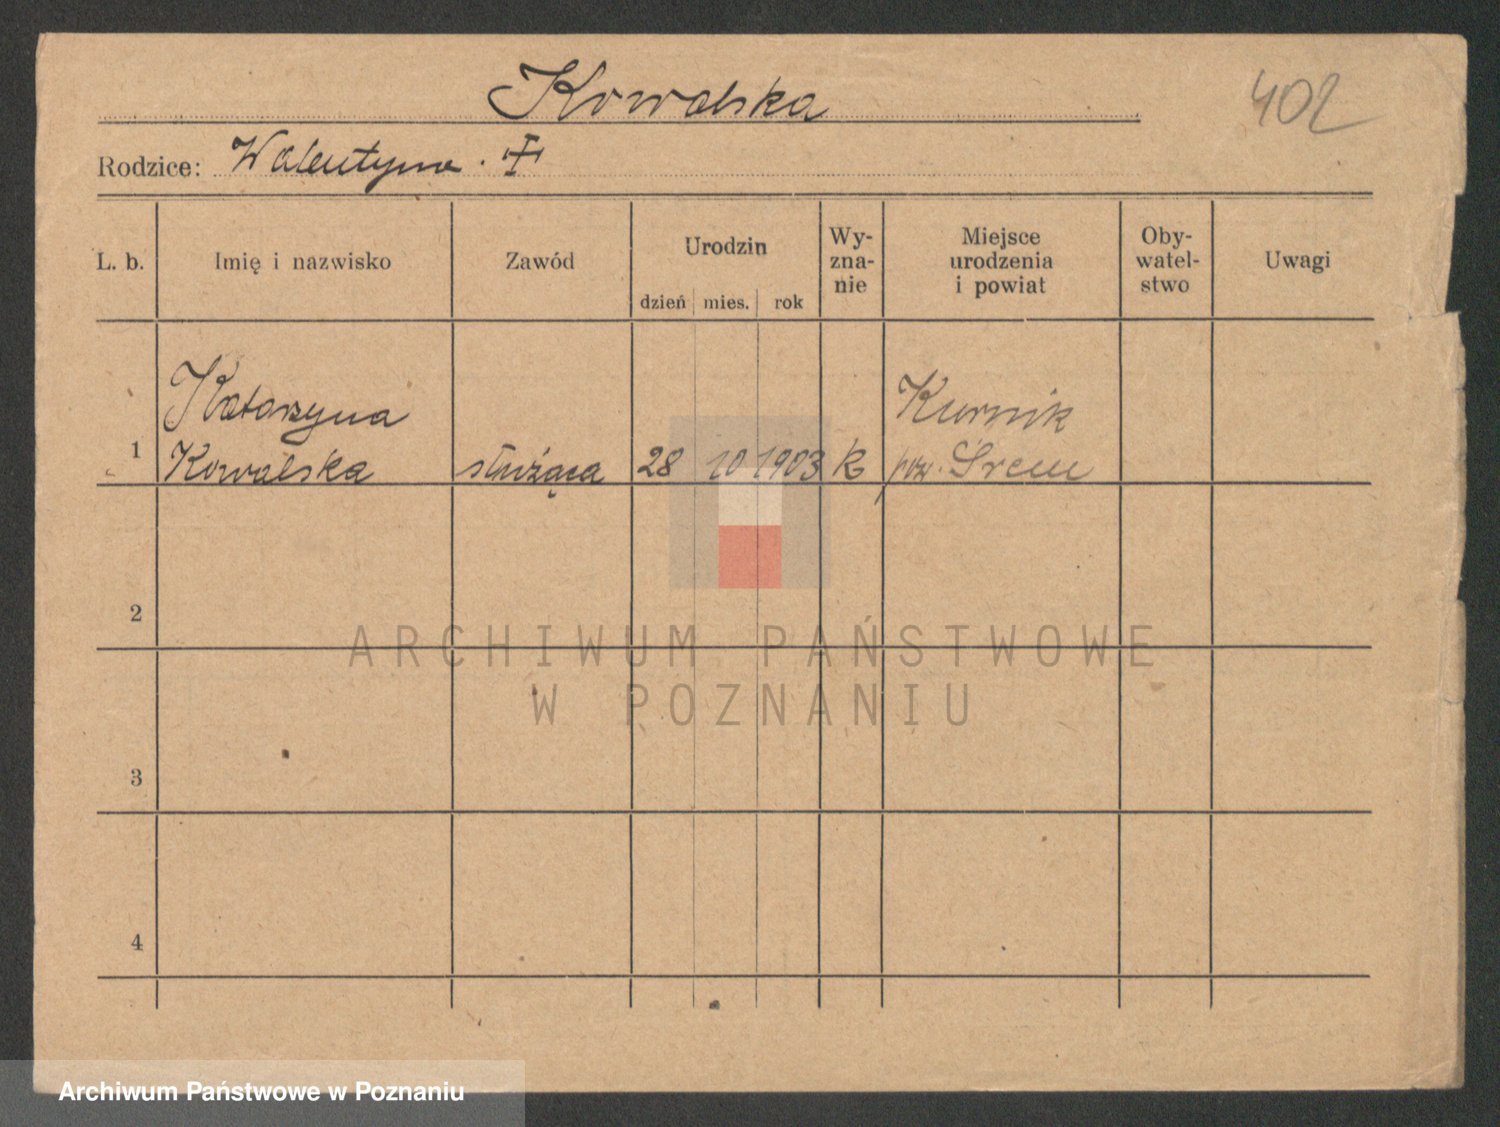 Kowalska
402
Rodzice: Walentyna . †
L. b.
Imię i nazwisko
Zawód
Urodzin
dzień mies. rok
Wy-
zna-
nie
Miejsce
urodzenia
i powiat
Oby-
watel-
stwo
Uwagi
1
Katarzyna
Kowalska
służąca
28 10 1903
k
Kurnik
pow. Śrem
2
3
4
ARCHIWUM PAŃSTWOWE
W POZNANIU
Archiwum Państwowe w Poznaniu